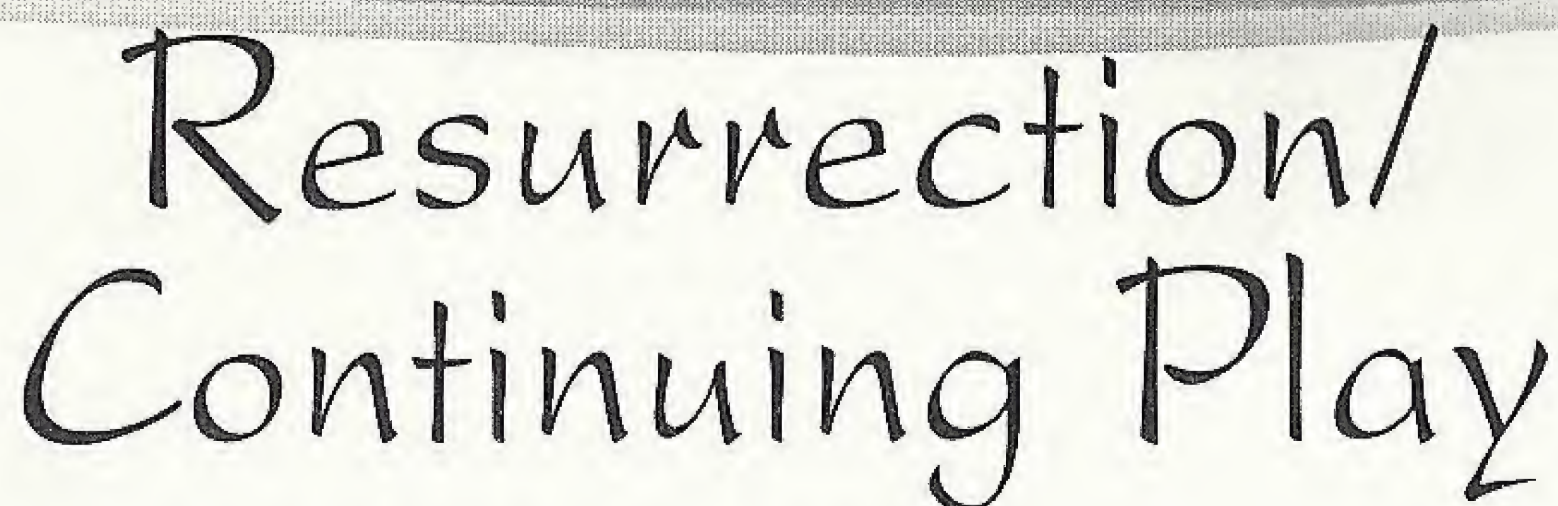 Resurrection/
Continuing Play